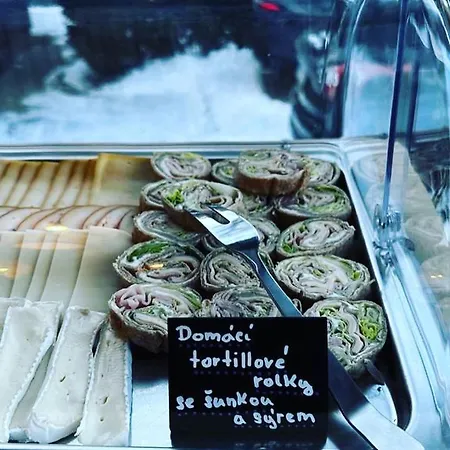 Domácí
tortillové
rolky
se šunkou
a sýrem